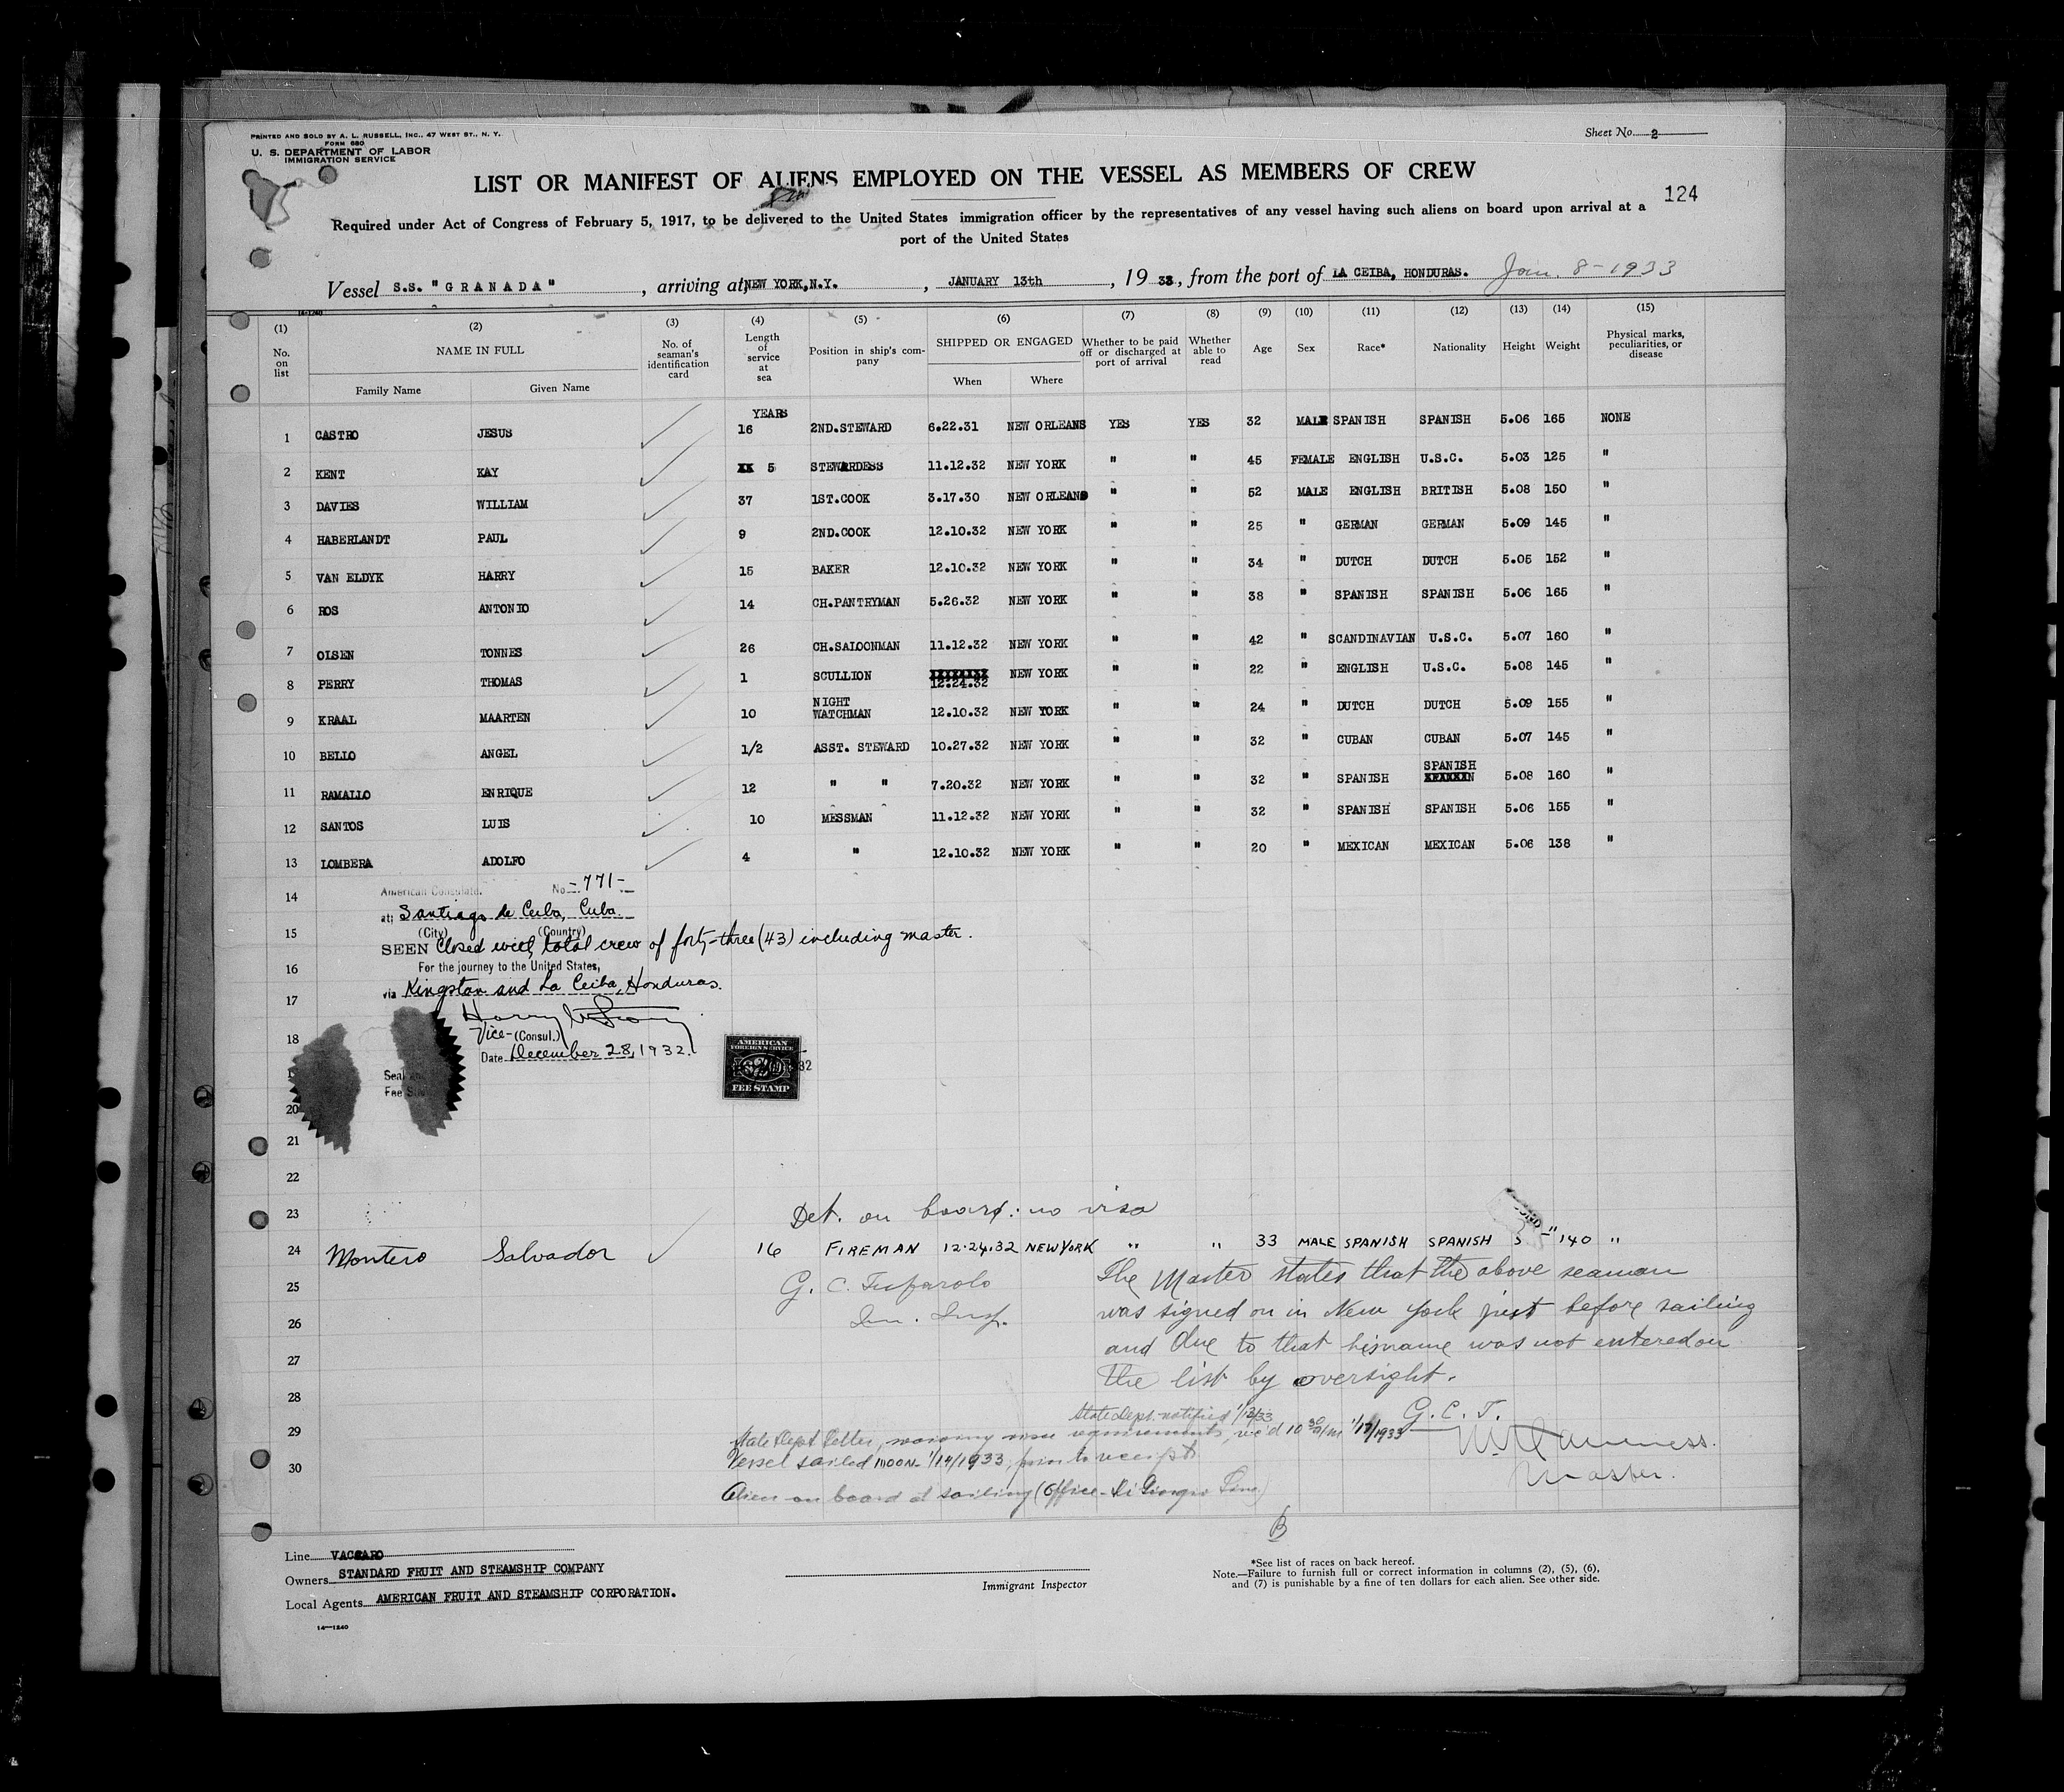 PRINTED AND SOLD BY A. L. RUSSELL, INC., 47 WEST ST., N. Y.
FORM 680
U. S. DEPARTMENT OF LABOR
IMMIGRATION SERVICE
Sheet No. 2
LIST OR MANIFEST OF ALIENS EMPLOYED ON THE VESSEL AS MEMBERS OF CREW
124
Required under Act of Congress of February 5, 1917, to be delivered to the United States immigration officer by the representatives of any vessel having such aliens on board upon arrival at a
port of the United States
Vessel S.S. "GRANADA", arriving at NEW YORK, N.Y., JANUARY 13th, 1933, from the port of LA CEIBA, HONDURAS. Jan. 8-1933
14-1240
(1) (2) (3) (4) (5) (6) (7) (8) (9) (10) (11) (12) (13) (14) (15)
No. on list NAME IN FULL Family Name Given Name No. of seaman's identification card Length of service at sea Position in ship's company SHIPPED OR ENGAGED When Where Whether to be paid off or discharged at port of arrival Whether able to read Age Sex Race* Nationality Height Weight Physical marks, peculiarities, or disease
YEARS
1 CASTRO JESUS 16 2ND.STEWARD 6.22.31 NEW ORLEANS YES YES 32 MALE SPANISH SPANISH 5.06 165 NONE
2 KENT KAY 5 STEWARDESS 11.12.32 NEW YORK " " 45 FEMALE ENGLISH U.S.C. 5.03 125 "
3 DAVIES WILLIAM 37 1ST.COOK 3.17.30 NEW ORLEANS " " 52 MALE ENGLISH BRITISH 5.08 150 "
4 HABERLANDT PAUL 9 2ND.COOK 12.10.32 NEW YORK " " 25 " GERMAN GERMAN 5.09 145 "
5 VAN ELDYK HARRY 15 BAKER 12.10.32 NEW YORK " " 34 " DUTCH DUTCH 5.05 152 "
6 ROS ANTONIO 14 CH.PANTRYMAN 5.26.32 NEW YORK " " 38 " SPANISH SPANISH 5.06 165 "
7 OLSEN TONNES 26 CH.SALOONMAN 11.12.32 NEW YORK " " 42 " SCANDINAVIAN U.S.C. 5.07 160 "
8 PERRY THOMAS 1 SCULLION 12.24.32 NEW YORK " " 22 " ENGLISH U.S.C. 5.08 145 "
9 KRAAL MAARTEN 10 NIGHT WATCHMAN 12.10.32 NEW YORK " " 24 " DUTCH DUTCH 5.09 155 "
10 BELLO ANGEL 1/2 ASST. STEWARD 10.27.32 NEW YORK " " 32 " CUBAN CUBAN 5.07 145 "
11 RAMALLO ENRIQUE 12 " " 7.20.32 NEW YORK " " 32 " SPANISH SPANISH 5.08 160 "
12 SANTOS LUIS 10 MESSMAN 11.12.32 NEW YORK " " 32 " SPANISH SPANISH 5.06 155 "
13 LOMBERA ADOLFO 4 " 12.10.32 NEW YORK " " 20 " MEXICAN MEXICAN 5.06 138 "
14 American Consulate. No. -771-
at: Santiago de Cuba, Cuba.
15 (City) (Country)
SEEN Closed with total crew of forty-three (43) including master.
16 For the journey to the United States,
via Kingston and La Ceiba, Honduras.
17
18 Vice-(Consul.)
Date December 28, 1932.
AMERICAN FOREIGN SERVICE FEE STAMP
32
Seal
Fee
20
21
22
23 Det. on board: no visa
24 Montero Salvador 16 FIREMAN 12.24.32 NEW YORK " " 33 MALE SPANISH SPANISH 5 - 140 "
25 G. C. The Master states that the above seaman
26 Im. Insp. was signed on in New York just before sailing
27 and due to that his name was not entered on
the list by oversight.
28 G. C. T.
State Dept. notified 1/13/33
29 State Dept letter, waiving visa requirements, rec'd 10 30 a/m 1/17/1933
30 Vessel sailed noon 1/14/1933, prior to receipt
Master.
Alien on board at sailing (Office - Di Giorgio Line)
B
Line VACCARO
Owners STANDARD FRUIT AND STEAMSHIP COMPANY
Local Agents AMERICAN FRUIT AND STEAMSHIP CORPORATION.
14-1240
Immigrant Inspector
*See list of races on back hereof.
Note.—Failure to furnish full or correct information in columns (2), (5), (6),
and (7) is punishable by a fine of ten dollars for each alien. See other side.